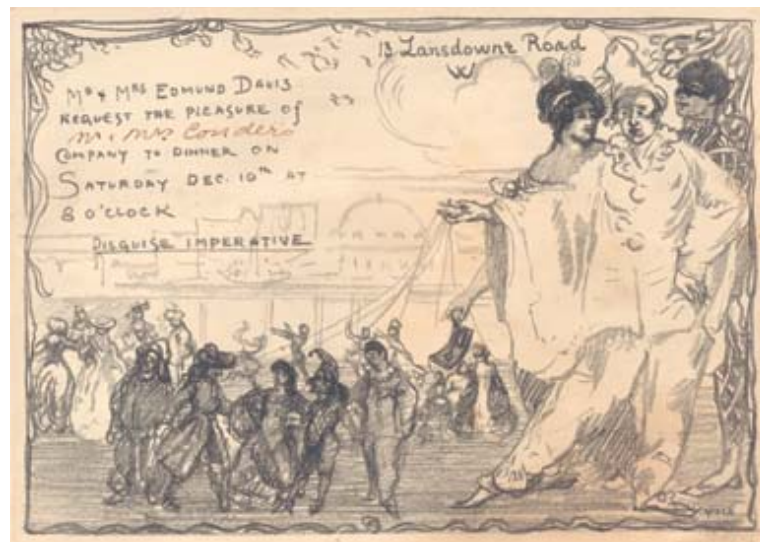 13 Lansdowne Road
W
Mr & Mrs Edmund Davis
request the pleasure of
Mr. Mrs Conder's
Company to dinner on
Saturday Dec. 10th at
8 o'clock
Disguise imperative